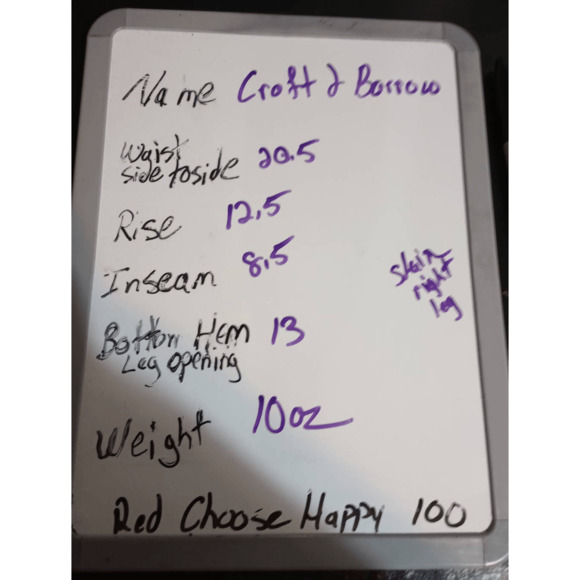 Name Croft & Borrow
Waist
side to side 20.5
Rise 12.5
Inseam 8.5
Stain
right
leg
Bottom Hem 13
Leg opening
Weight 10oz
Red Choose Happy 100